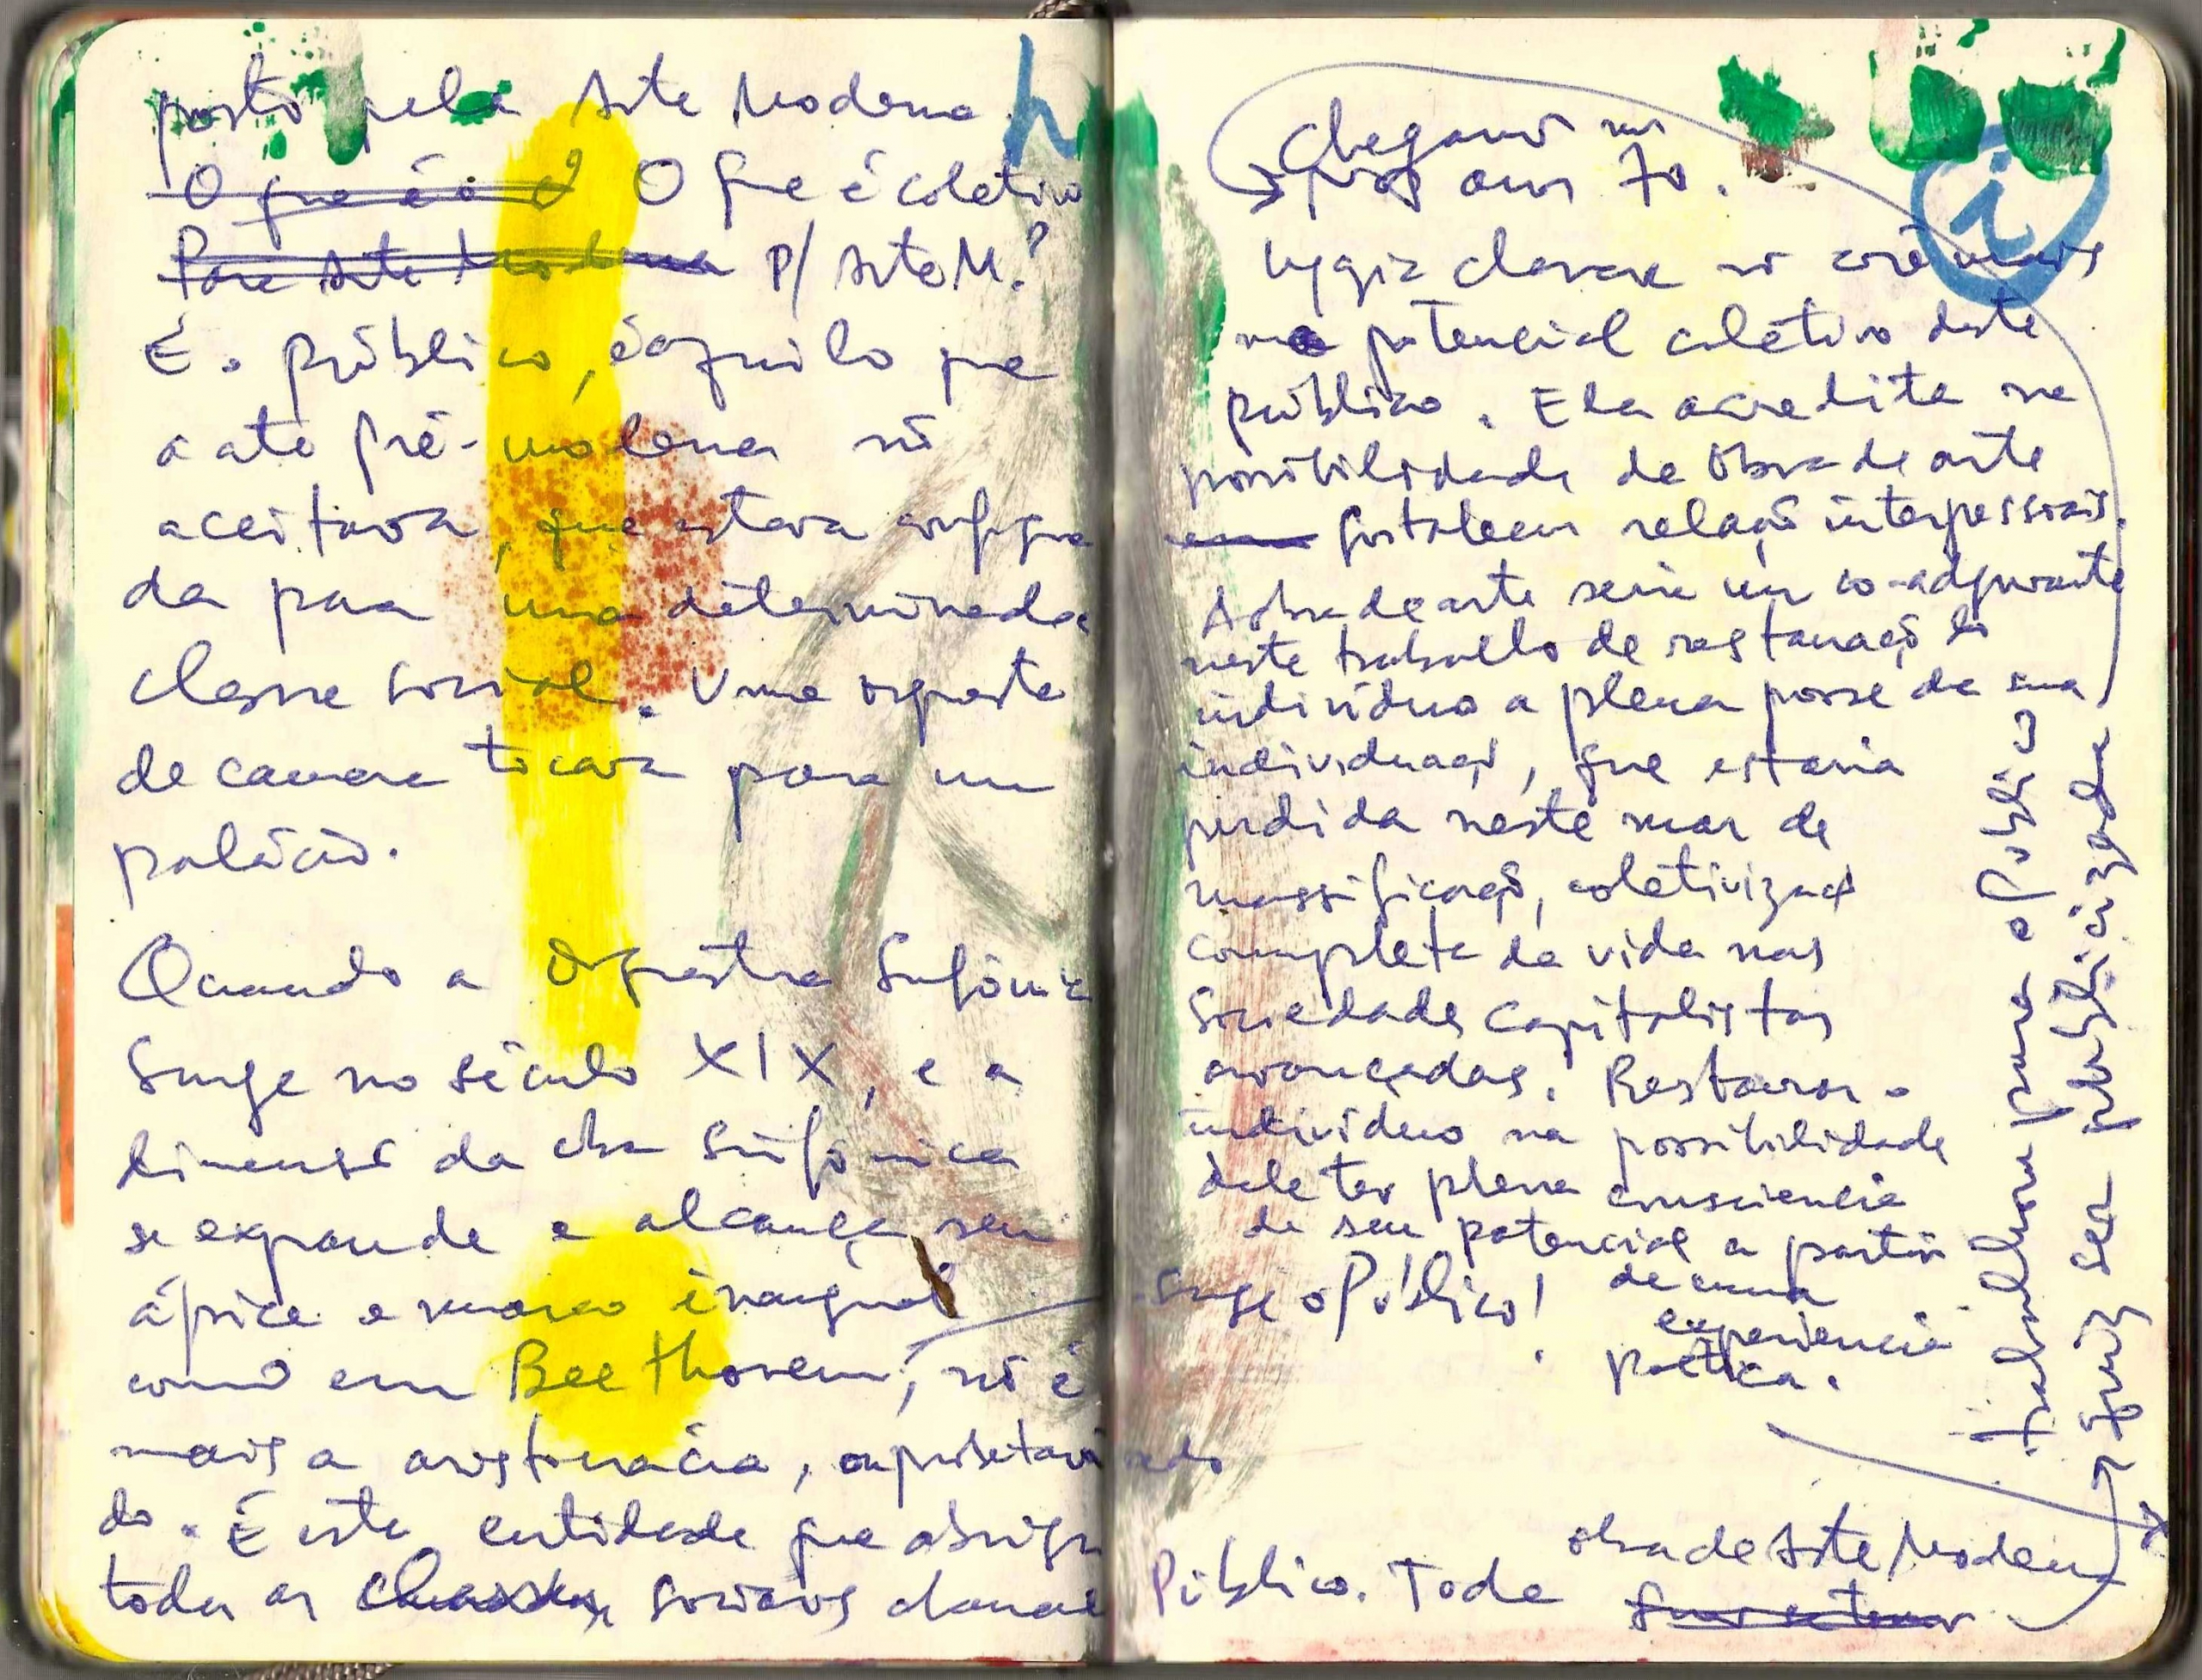 posto pela Arte Moderna.
O que é o é? O que é coletivo
Para Arte Moderna P/ Arte M.?
É o público, é aquilo que
a arte pré-moderna não
aceitava, que estava configura
da para uma determinada
classe social. Uma orquestra
de camara tocava para um
palácio.
Quando a Orquestra Sinfônica
surge no século XIX, e a
dimensão da obra sinfônica
se expande e alcança seu
ápice e marco inaugural
como em Beethovem, não é
mais a aristocracia, ou proletariado
do. É esta entidade que abriga
todas as classes sociais chamada
surge o Público!
Público. Toda obra de Arte Moderna
trabalhou para o público
e quiz ser publicizada
Chegando nos
anos 70.
Lygia Clark não crê mais
no potencial coletivo deste
público. Ela acredita na
possibilidade de obra de arte
fortalecer relação interpessoais.
A obra de arte seria um co-adjuvante
neste trabalho de restauração do
indivíduo a plena posse de sua
individuação, que estaria
perdida neste mar de
massificação, coletivização
completa da vida nas
sociedades capitalistas
avançadas. Restaurar o
indivíduo na possibilidade
dele ter plena consciencia
de seu potencial a partir
de uma
experiencia
poética.
i